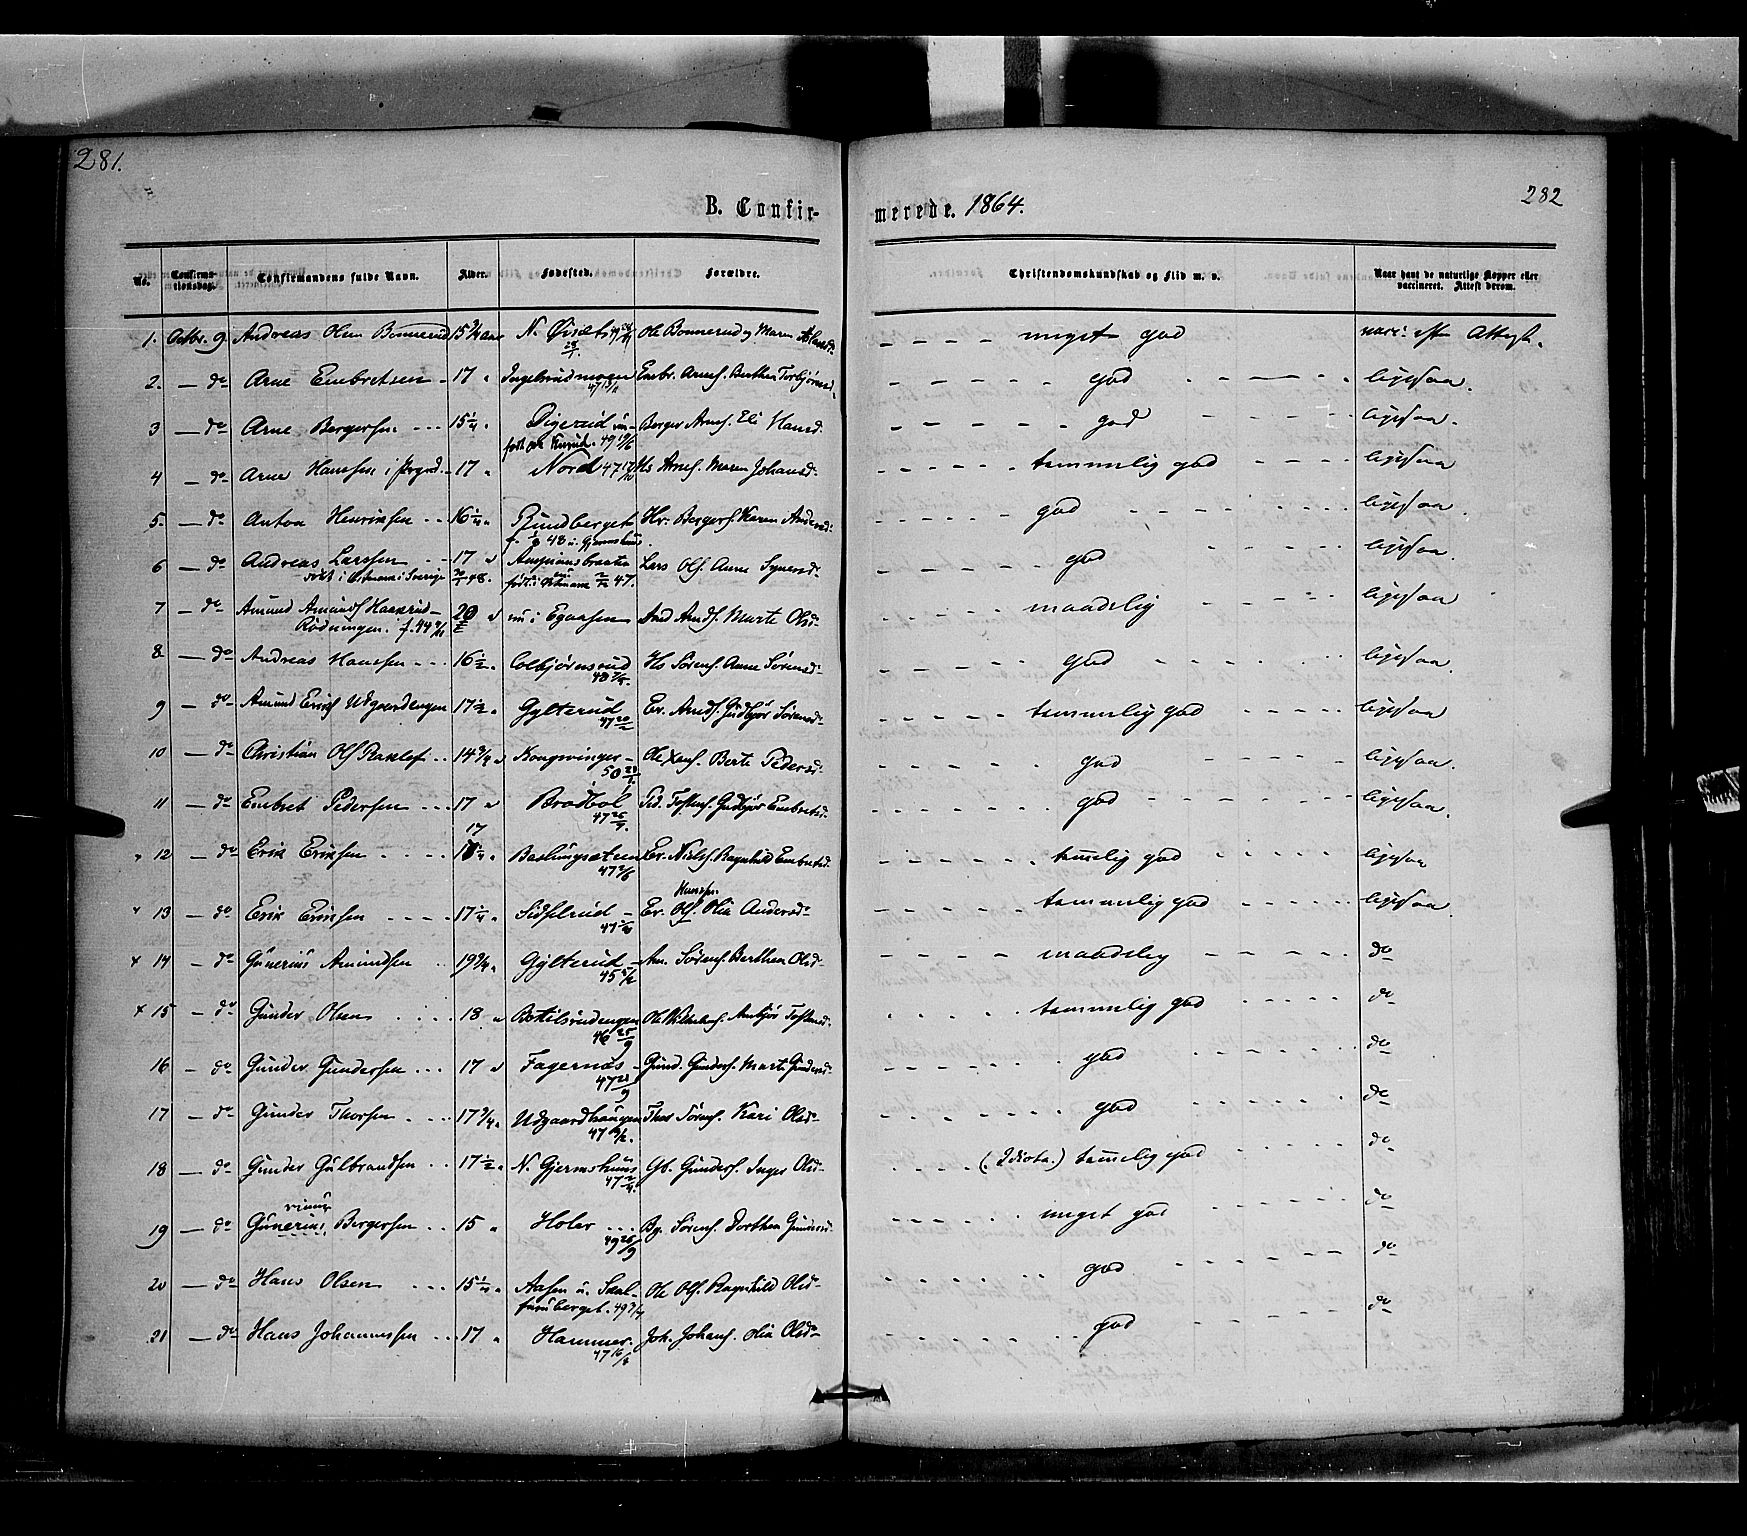 281.
282
B. Confir-
merede. 1864.
No. Confirmationsdag. Confirmandens fulde Navn. Alder. Fødested. Forældre. Christendomskundskab og Flid m. v. Naar havt de naturlige Kopper eller vaccineret. Attest derom.
1. Octbr. 9. Andreas Olsen Bonnerud 15 3/4 aar N. Ole Bonnerud og Maren meget god vacc: eft Attest.
2. — do Arne Embretsen 17 " Ingelsrudmoen Embr. Arnes. Berthea Torbjørnsd. god ligesaa.
3 — do Arne Bergersen 15 1/4 " Digerud Berger Arnes. Eli Hansd. god ligesaa.
49 19/6
4 — do Arne Hanssen 17 " Nord 47 Hs Arnes. Maren Johansd. temmelig god ligesaa
5. — do Anton Henriksen 16 1/4 " Rundberget Hr. Bergers. Karen Andersd. god ligesaa.
6 — do Andreas Larssen 17 " Lars Ols. Anne Synersd. god ligesaa.
født i Østmark i Sverige
7 — do Amund Amunds. Haakerud 20 " nu i Egaasen Amd Amds. Marte Olsd. maadelig ligesaa
Rødningen.
8 — do Andreas Hanssen 16 1/2 " Colbjørnsrud Hs Sørens. Anne Sørensd. god ligesaa.
9 — do Amund Eriks. Udgaardengen 17 1/2 " Gylterud Er. Amds. Gudbjør Sørensd. temmelig god ligesaa
47 20/2
10 — do Christian Ols. 14 3/4 " Kongsvinger Ole Berte Pedersd. god ligesaa.
11 — do Embret Pedersen 17 " Brødbøl Ped. Tostens. Gudbjør Embretsd. god ligesaa.
47 26/9.
12 — do Erik Eriksen 17 Er. Niels. Ragnhild Embretsd. temelig god ligesaa
13 — do Erik Eriksen 17 1/4 " Sidselrud Er. Ols. Olia Andersd. temmelig god ligesaa.
x 14 — do Gunerius Amundsen 19 3/4 " Gylterud Am. Sørens. Berthea Olsd. maadelig do
x 15 — do Gunder Olsen 18 " Botilsrudengen Ole Anbjør Tostensd. temmelig god do
46 25/9
16 — do Gunder Gundersen 17 " Fagernæs Gund. Gunders. Marte Gundersd. god do
17 — do Gunder Thorsen 17 3/4 " Udgaardhaugen Thor Sørens. Kari Olsd. god do
18 — do Gunder Gulbrandsen 17 1/2 " N. Gjermshuus Gb. Gunders. Inger Olsd. (Idiota.) temelig god do
19 — do Gunerius Bergersen 15 " Holer Bg. Sørens. Dorthea Gundersd. meget god do
49 26/9
20 — do Hans Olsen 15 1/4 " Aasen u. Skal- Ole Ols. Ragnhild Olsd. god do
21 — do Hans Johannessen 17 " Hammer. Joh. Johans. Olia Olsd. god do
47 16/8